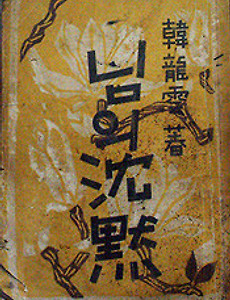 韓龍雲 著
님의 沈黙